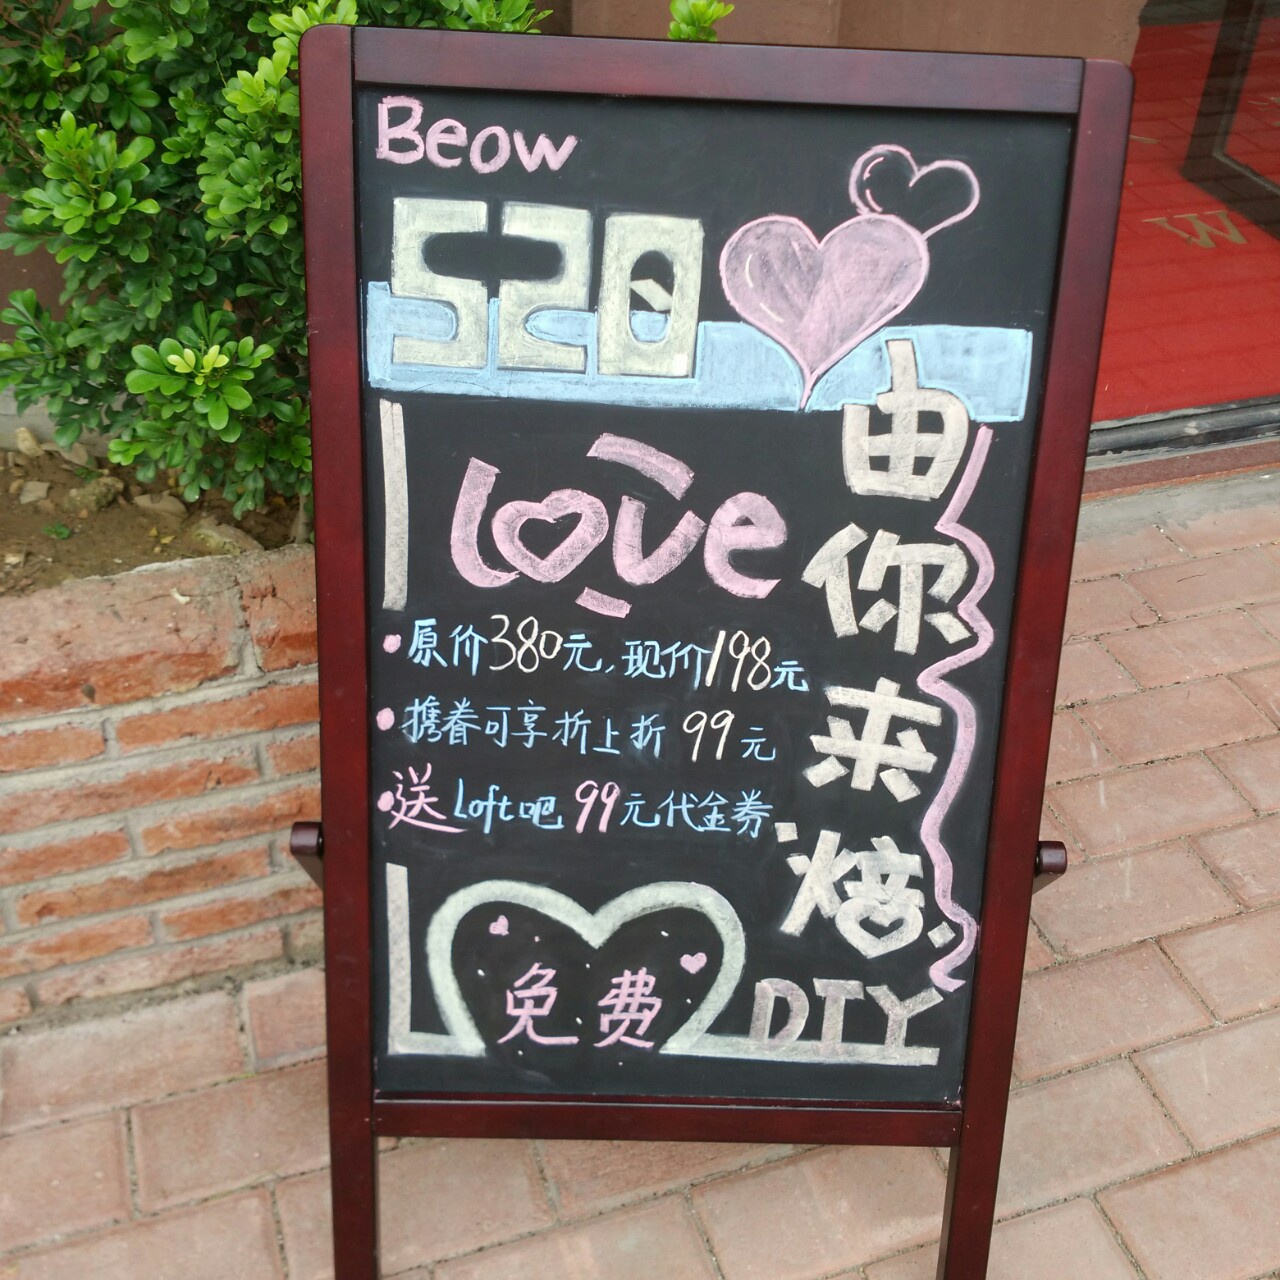 Beow
520
Love
由你来焙
·原价380元,现价198元
·携眷可享折上折 99元
·送 Loft吧 99元代金券
免费
DIY